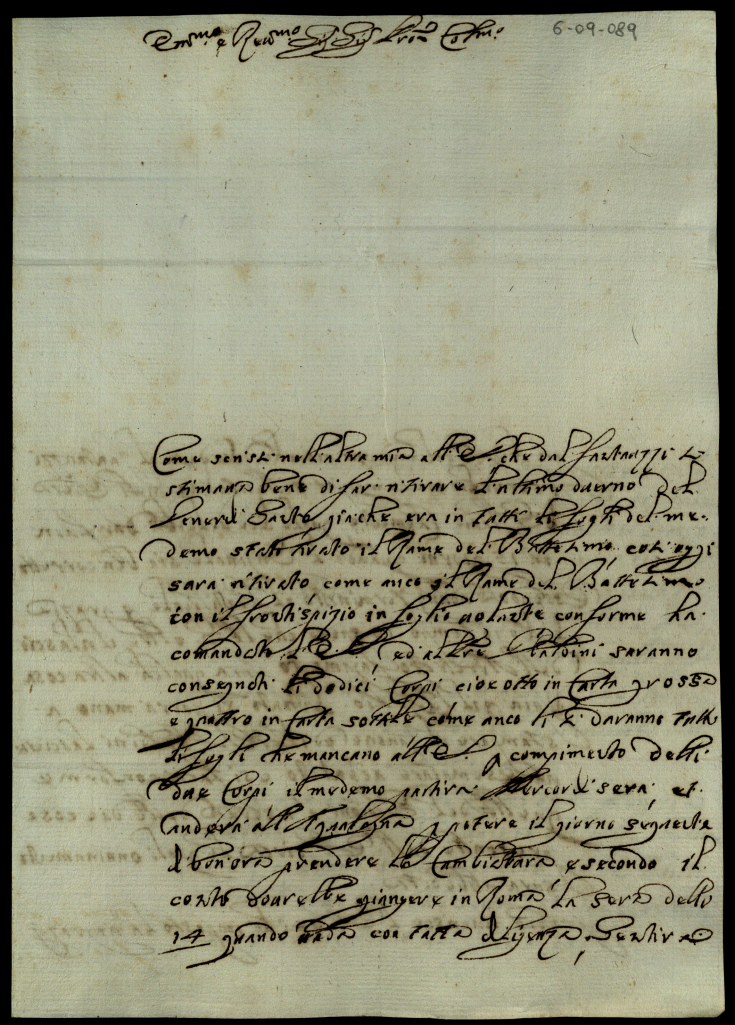 6-09-089
Em.mo e Rev.mo Sig Sig Pron Col.mo
Come scrissi nell altra mia all E che dal
stimava bene di far ritirare l'ultimo duerno del
già che era in tutti li fogli del me-
demo stati tirato il Rame del Battesimo così oggi
sara ritirato come anco il Rame del Battesimo
con il frontispizio in foglio volante conforme ha
comandato ed all Re Baldini saranno
consegnati li dodici Corpi cioe otto in Carta grossa
e quattro in Carta sottile come anco li daranno tutti
li fogli che mancano all E. p compimento delli
due Corpi il medemo partira Mercordi sera et
andera all p potere il giorno seguente
di bon'ora prendere la Cambiatura e secondo il
conto dovrebbe giungere in Roma la sera delli
14 quando vada con tutta diligenza. Sentira